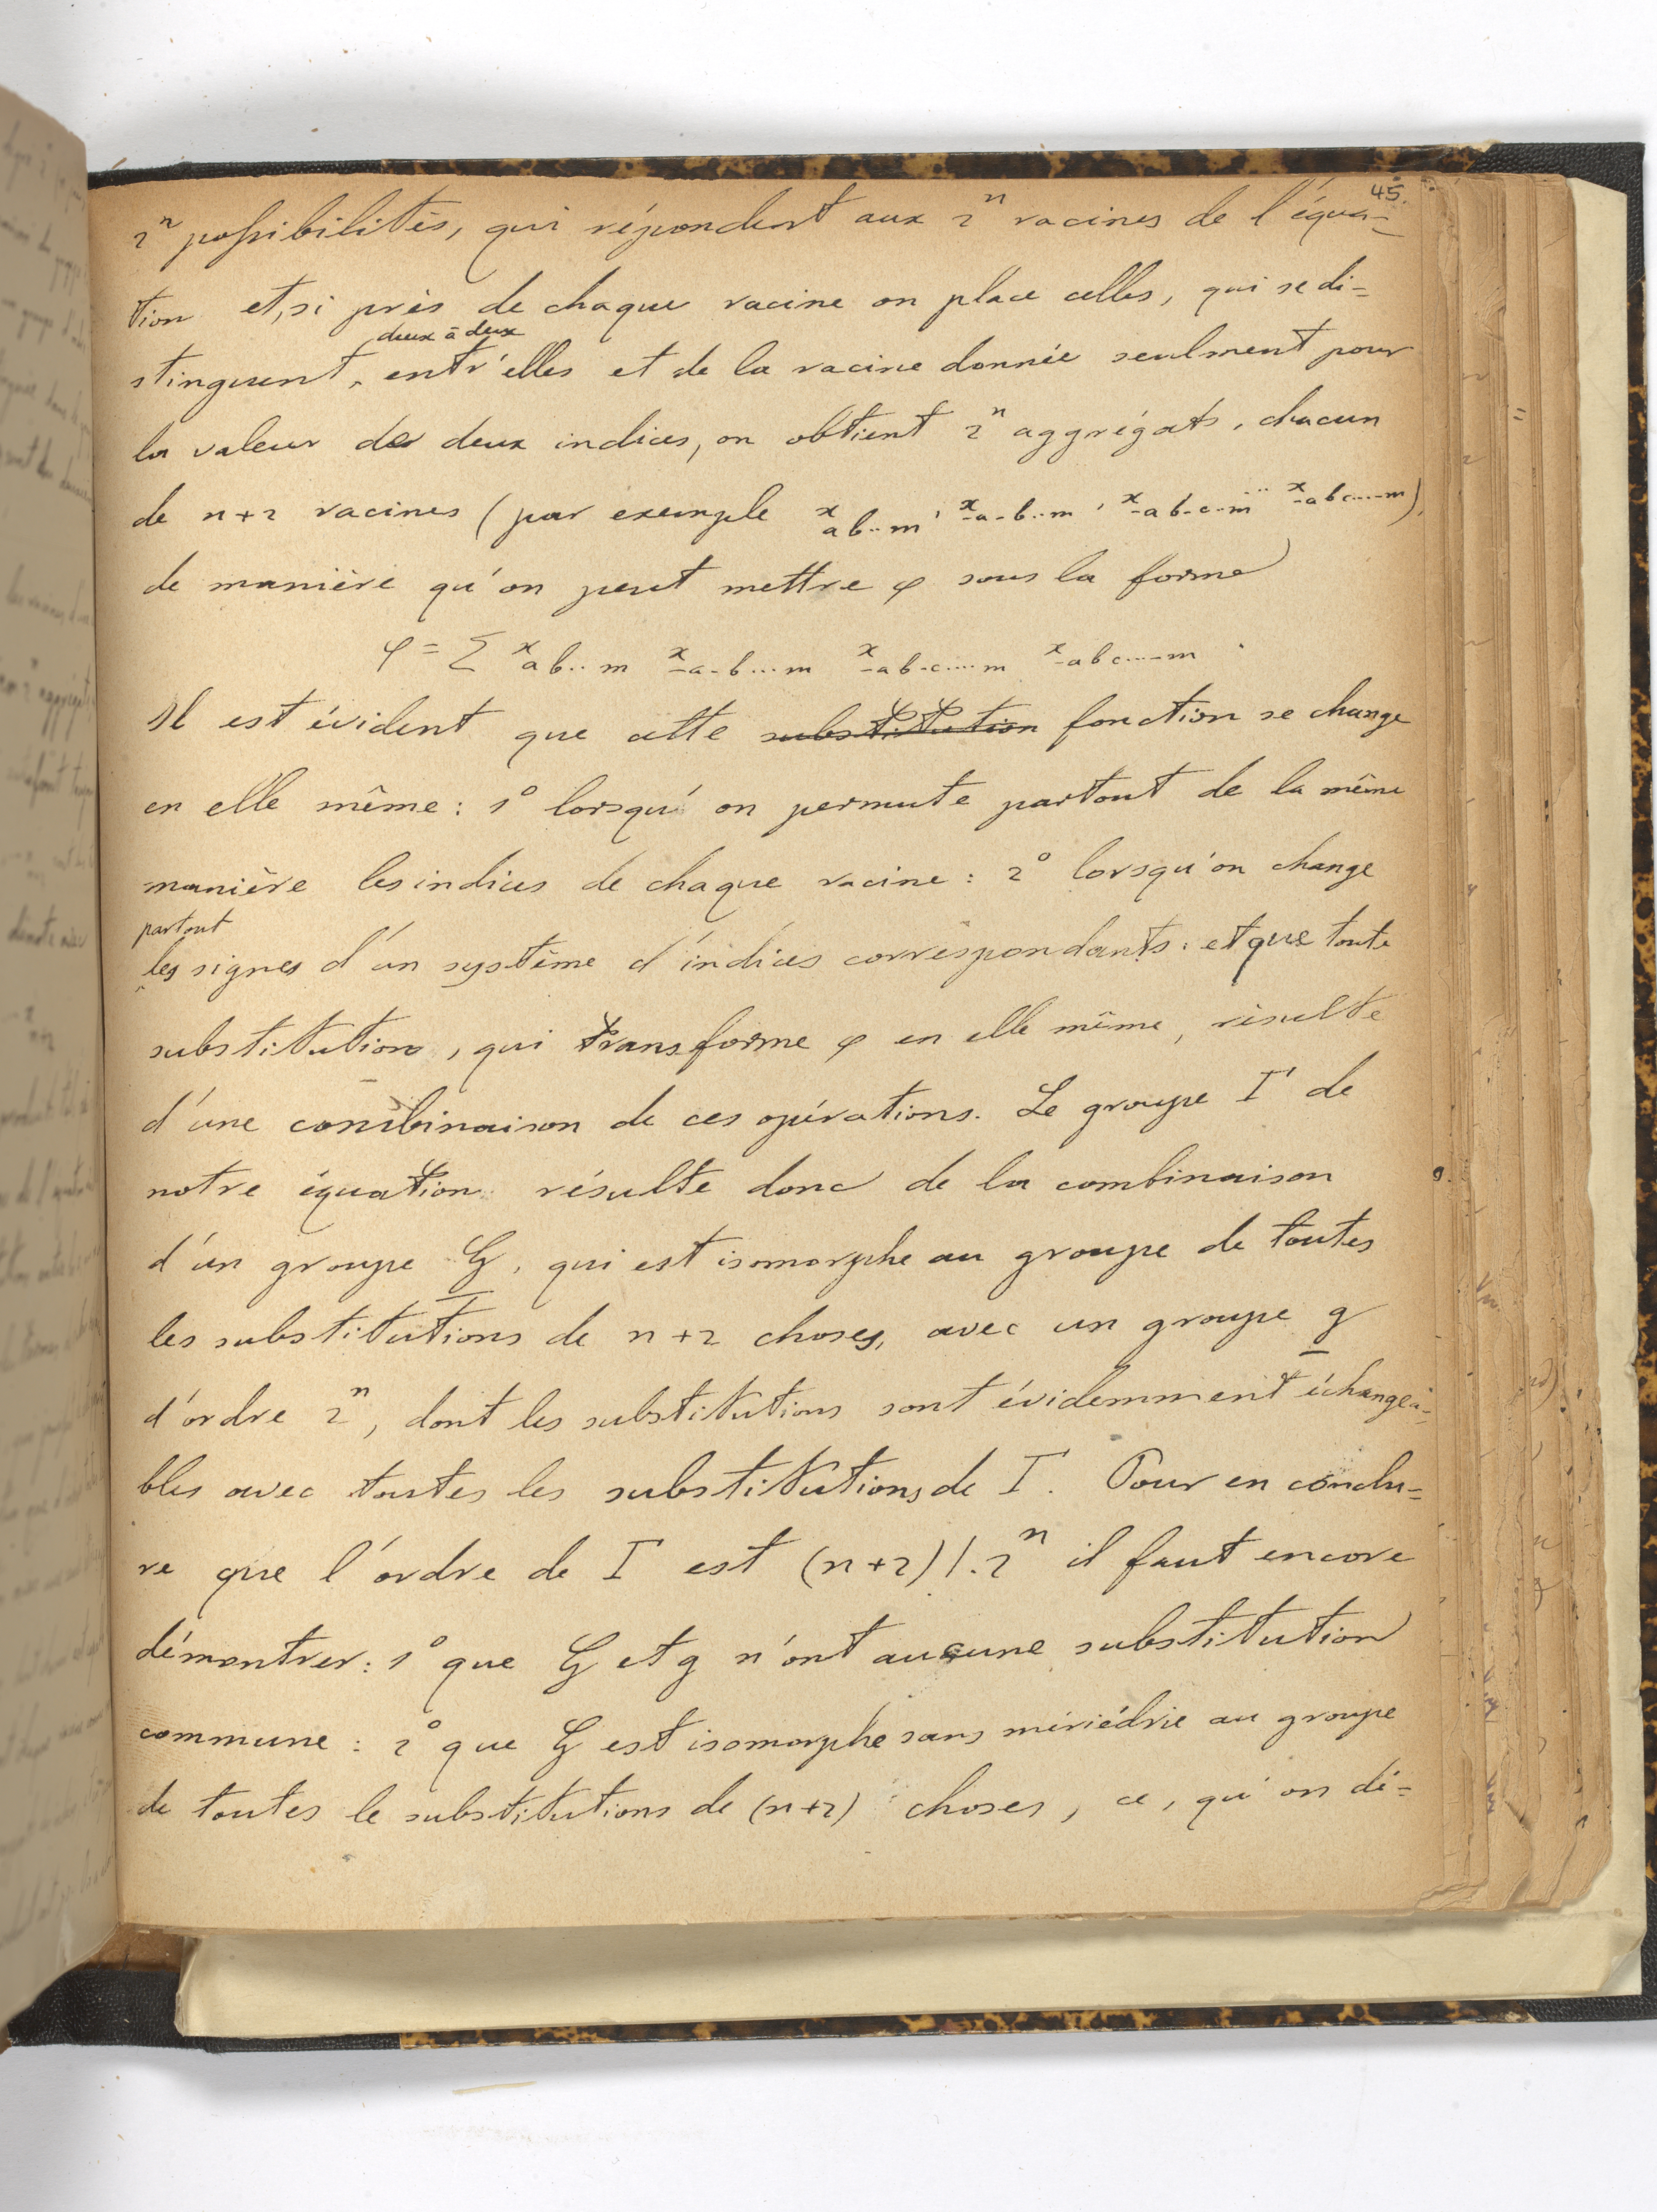 45.
2ⁿ possibilités, qui répondent aux 2ⁿ racines de l'équa=
tion et, si près de chaque racine on place celles, qui se di=
deux à deux
stinguent, entr'elles et de la racine donnée seulment pour
la valeur de deux indices, on obtient 2ⁿ aggrégats, chacun
de n+2 racines (par exemple x ab..m, x -a-b..m, x -ab-c..m .. x -abc....-m),
de manière qu'on peut mettre φ sous la forme
φ = Σ x ab..m x -a-b...m x -ab-c....m x -abc....-m .
Il est évident que cette substitution fonction se change
en elle même: 1° lorsqu'on permute partout de la même
manière les indices de chaque racine: 2° lorsqu'on change
partout
les signes d'un système d'indices correspondants: et que toute
substitution, qui transforme φ en elle même, résulte
d'une combinaison de ces opérations. Le groupe Γ de
notre équation résulte donc de la combinaison
d'un groupe G, qui est isomorphe au groupe de toutes
les substitutions de n+2 choses, avec un groupe g
d'ordre 2ⁿ, dont les substitutions sont évidemment échangea=
bles avec toutes les substitutions de Γ. Pour en conclu=
re que l'ordre de Γ est (n+2)!.2ⁿ il faut encore
démontrer: 1° que G et g n'ont aucune substitution
commune: 2° que G est isomorphe sans mériédrie au groupe
de toutes le substitutions de (n+2) choses, ce, qu'on dé=